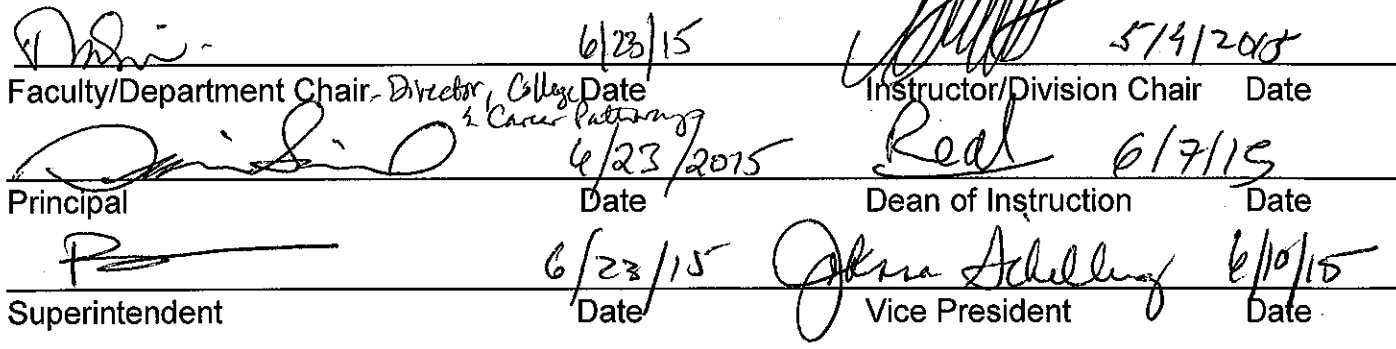 6/23/15 5/4/2015
Faculty/Department Chair - Director, College Date Instructor/Division Chair Date
& Career Pathways
6/23/2015 6/7/15
Principal Date Dean of Instruction Date
6/23/15 6/10/15
Superintendent Date Vice President Date